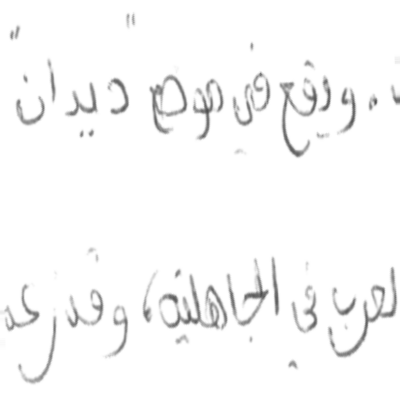 . ويقع في موضع "ديدان"
لعرب في الجاهلية، وقد زعم